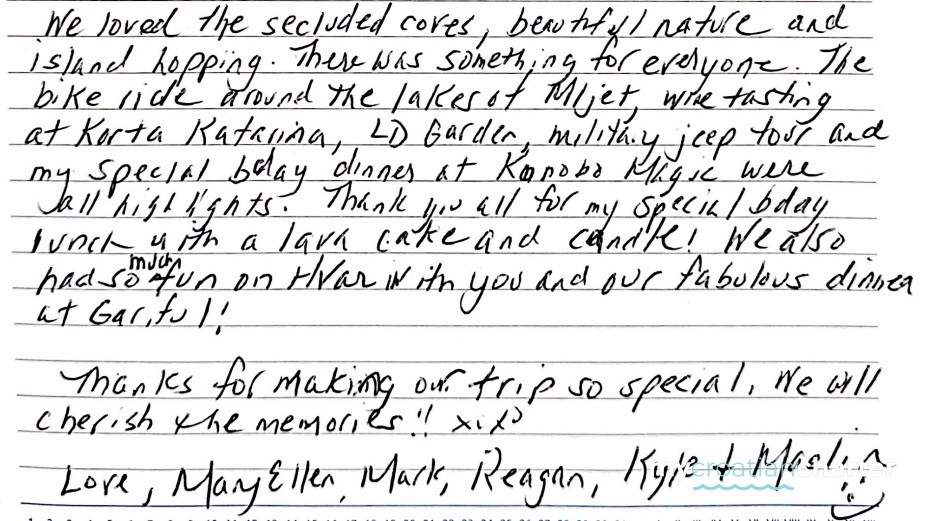 We loved the secluded coves, beautiful nature and
island hopping. There was something for everyone. The
bike ride around the lakes of Mljet, wine tasting
at Korta Katarina, LD Garden, military jeep tour and
my special bday dinner at Konoba Magic were
all highlights. Thank you all for my special bday
lunch with a lava cake and candle! We also
had so much fun on Hvar with you and our fabulous dinner
at Gariful!
Thanks for making our trip so special. We will
cherish the memories!!
Love, MaryEllen, Mark, Reagan, Kyle &
croatian charter